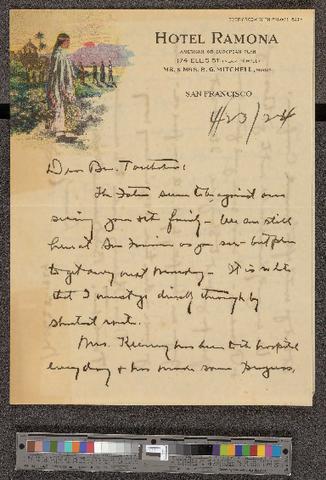 HOTEL RAMONA
AMERICAN OR EUROPEAN PLAN
174 ELLIS ST.
MR. & MRS. B. G. MITCHELL,
SAN FRANCISCO
4/23/24
Dear Bro.
The Fates seem to be against our
seeing you & the family - We are still
here at San Francisco as you see - but plan
to get away next Monday - It is so late
that I must go directly through by
shortest route.
Mrs. has been to the hospital
every day & has made some progress,